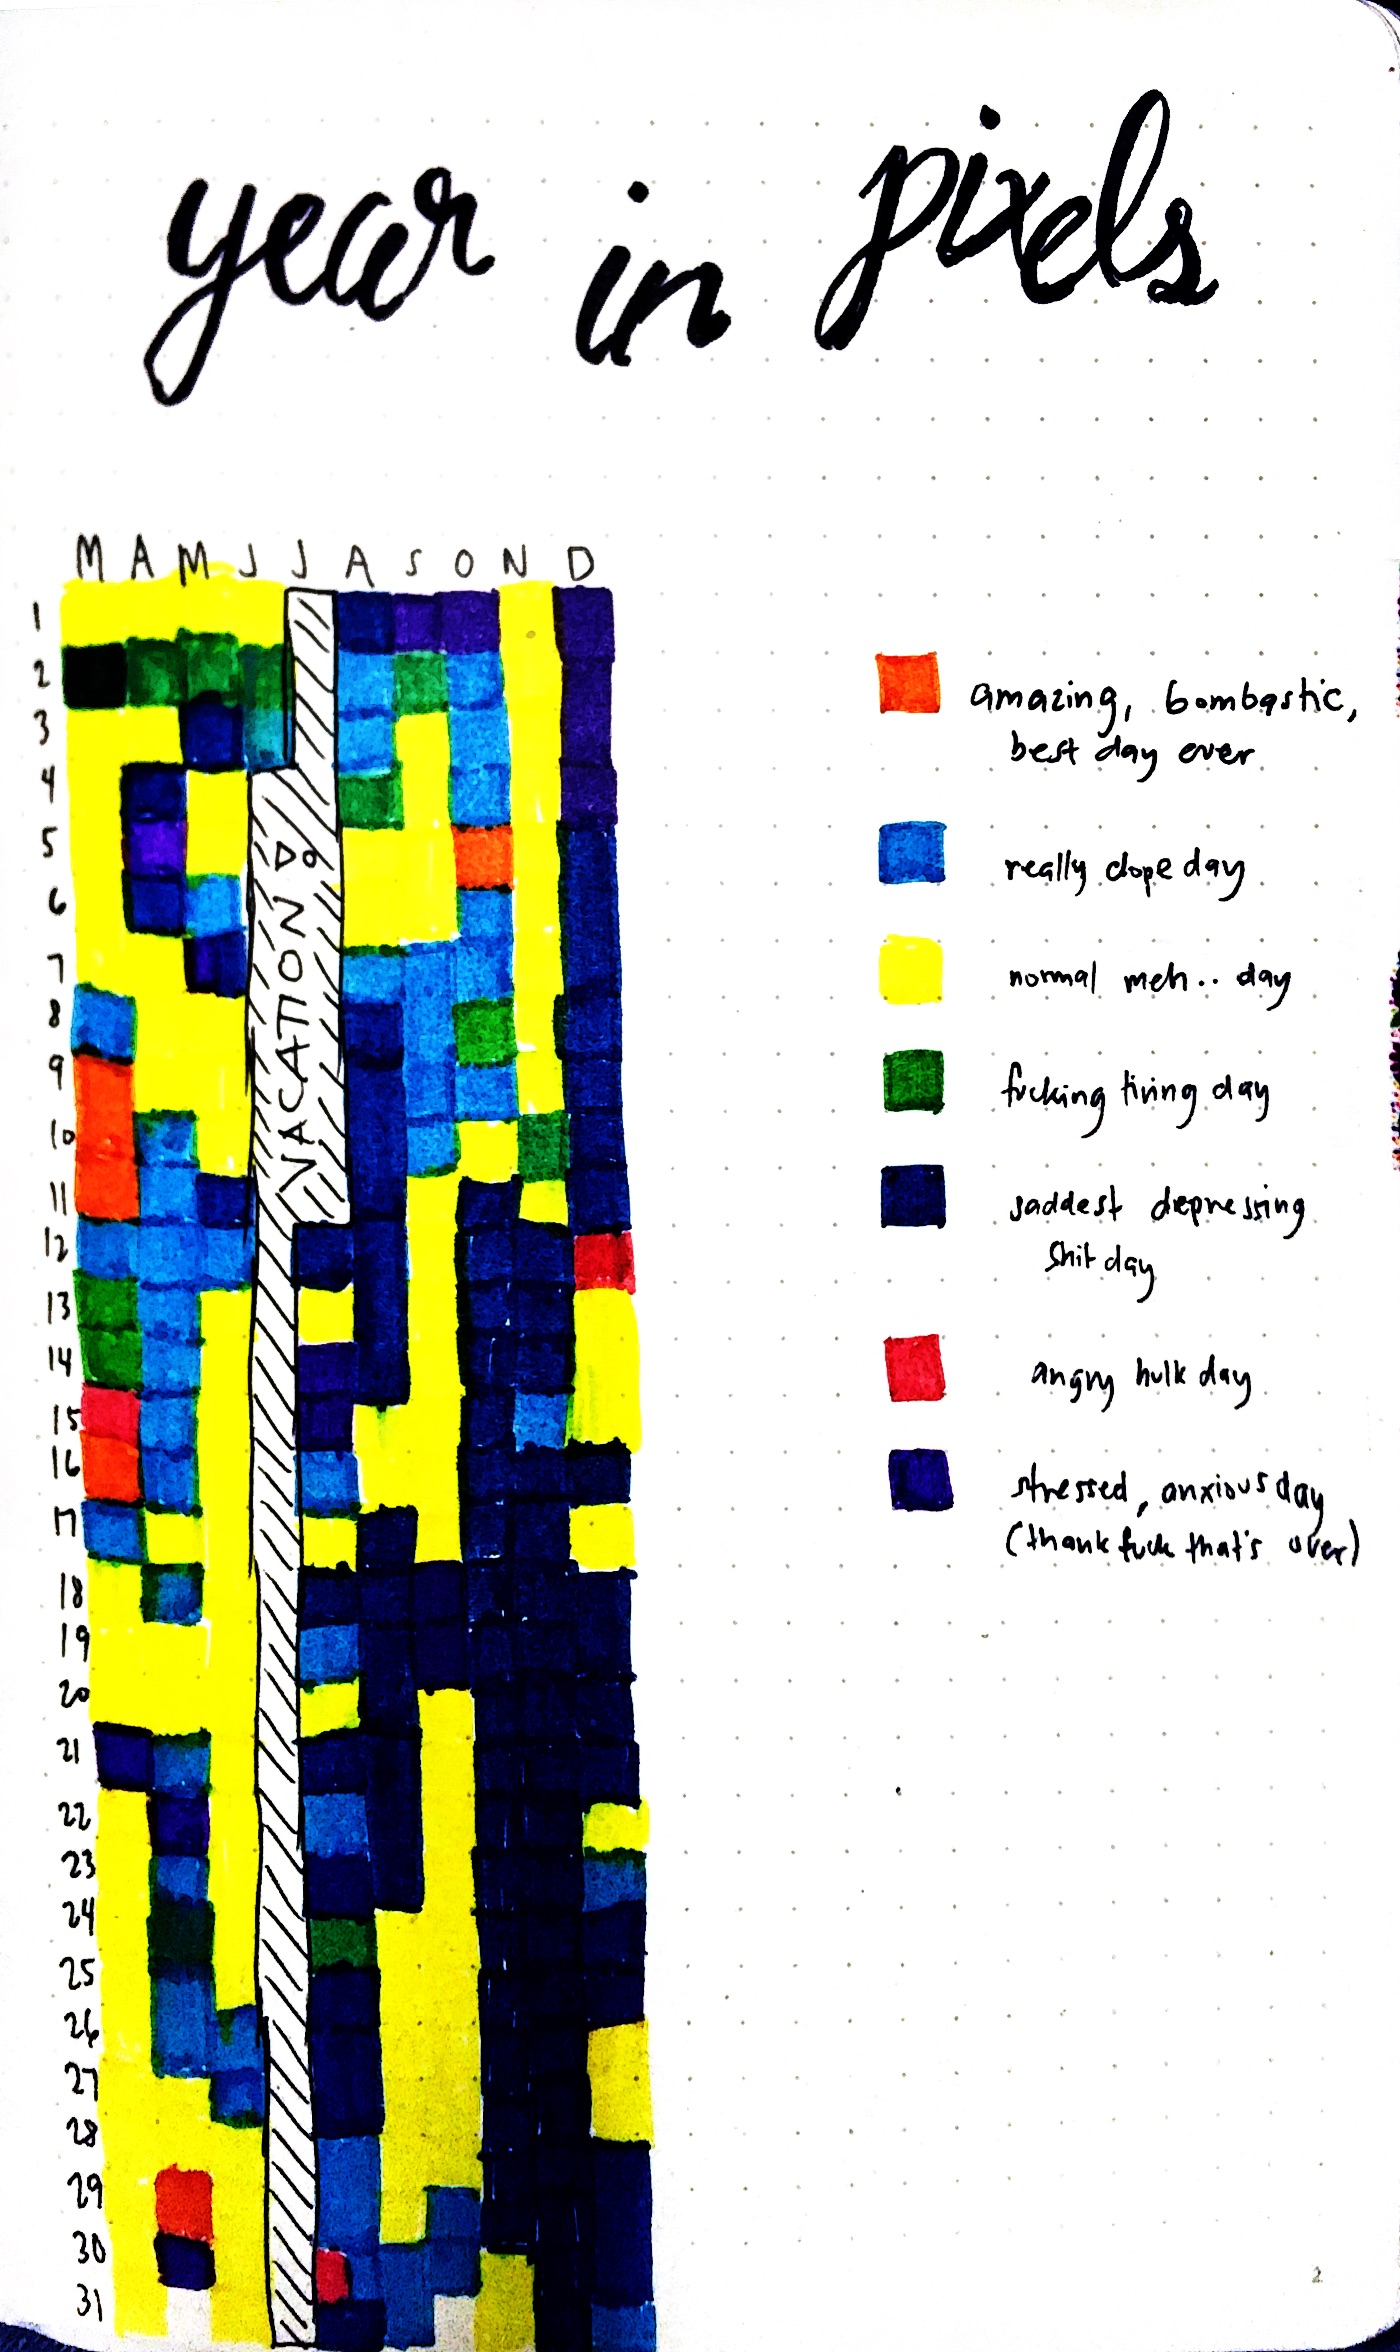 year in pixels
M A M J J A S O N D
1
2
3
4
5
6
7
8
9
10
11
12
13
14
15
16
17
18
19
20
21
22
23
24
25
26
27
28
29
30
31
VACATION
amazing, bombastic,
best day ever
really dope day
normal meh.. day
fucking tiring day
saddest depressing
shit day
angry hulk day
stressed, anxious day
(thank fuck that's over)
2